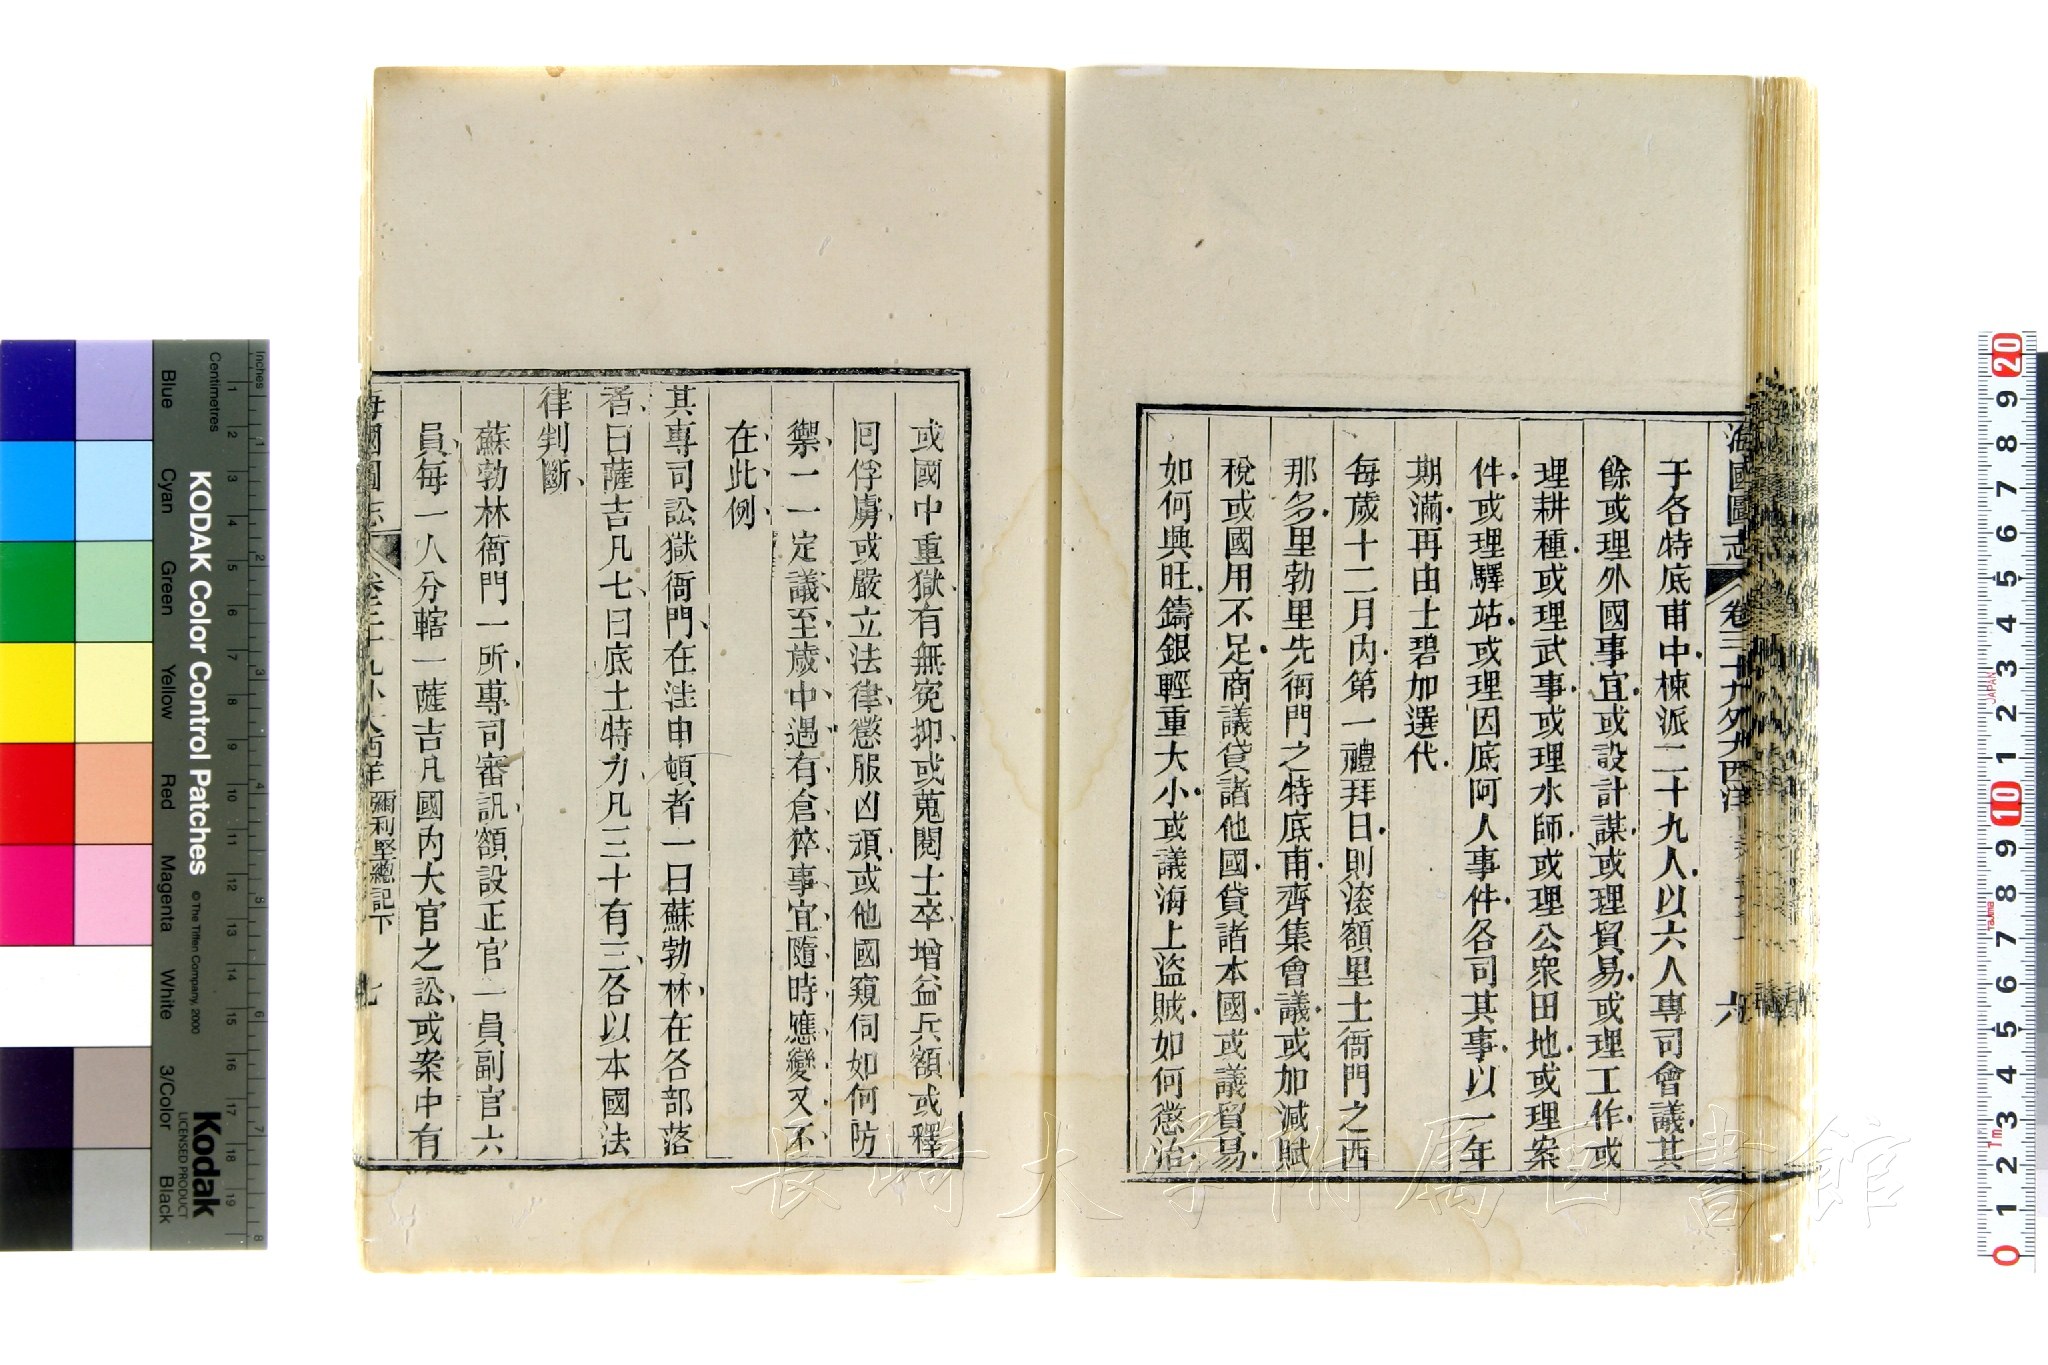 海國圖志 卷三十九外大西洋 六
于各特底甫中棟派二十九人以六人專司會議其
餘或理外國事宜或設計謀或理貿易或理工作或
理耕種或理武事或理水師或理公衆田地或理案
件或理驛站或理因底阿人事件各司其事以一年
期滿再由士碧加選代
每歲十二月內第一禮拜日則滾額里士衙門之西
那多里勃里先衙門之特底甫齊集會議或加減賦
稅或國用不足商議貸諸他國貸諸本國或議貿易
如何興旺鑄銀輕重大小或議海上盜賊如何懲治
或國中重獄有無冤抑或蒐閱士卒增益兵額或釋
囘俘虜或嚴立法律懲服凶頑或他國窺伺如何防
禦一一定議至歲中遇有倉猝事宜隨時應變又不
在此例
其專司訟獄衙門在洼申頓者一曰蘇勃林在各部落
者曰薩吉凡七曰底士特力凡三十有三各以本國法
律判斷
蘇勃林衙門一所專司審訊額設正官一員副官六
員每一人分轄一薩吉凡國內大官之訟或案中有
海國圖志 卷三十九小大西洋 彌利堅總記下 七
長崎大学附属図書館
KODAK Color Control Patches © The Tiffen Company, 2000
Kodak
LICENSED PRODUCT
Blue Cyan Green Yellow Red Magenta White 3/Color Black
Inches 1 2 3 4 5 6 7 8
Centimetres 1 2 3 4 5 6 7 8 9 10 11 12 13 14 15 16 17 18 19
0 1 2 3 4 5 6 7 8 9 10 1 2 3 4 5 6 7 8 9 20
JAPAN
Tajima
Tm